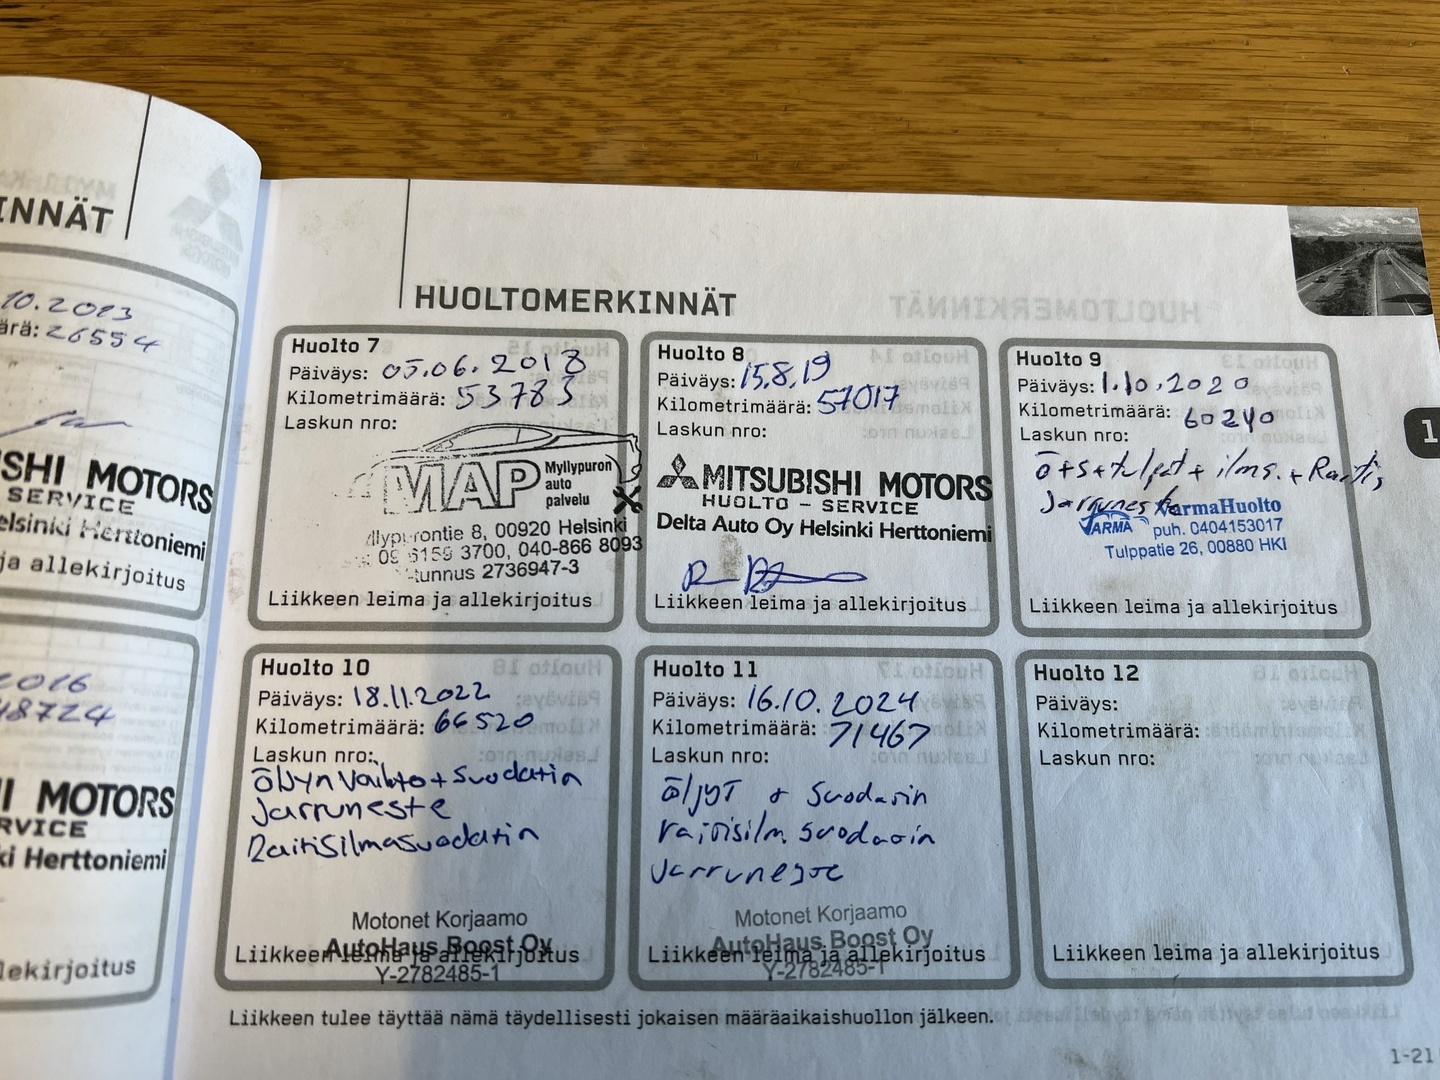 INNÄT
10.2013
ärä: 26554
SHI MOTORS
SERVICE
elsinki Herttoniemi
ja allekirjoitus
2016
48724
I MOTORS
RVICE
ki Herttoniemi
lekirjoitus
HUOLTOMERKINNÄT
Huolto 7
Päiväys: 05.06.2018
Kilometrimäärä: 53783
Laskun nro:
MAP Myllypuron
auto
palvelu
rontie 8, 00920 Helsinki
3700, 040-866 8093
tunnus 2736947-3
Liikkeen leima ja allekirjoitus
Huolto 8
Päiväys: 15.8.19
Kilometrimäärä: 57017
Laskun nro:
MITSUBISHI MOTORS
HUOLTO - SERVICE
Delta Auto Oy Helsinki Herttoniemi
Liikkeen leima ja allekirjoitus
Huolto 9
Päiväys: 1.10.2020
Kilometrimäärä: 60240
Laskun nro:
ö+s+tulpat + ilms. + Raitis
Jarruneste
VarmaHuolto
VARMA puh. 0404153017
Tulppatie 26, 00880 HKI
Liikkeen leima ja allekirjoitus
Huolto 10
Päiväys: 18.11.2022
Kilometrimäärä: 66520
Laskun nro:
öljyn vaihto + suodatin
Jarruneste
Raitisilmasuodatin
Motonet Korjaamo
AutoHaus Boost Oy
Liikkeen leima ja allekirjoitus
Y-2782485-1
Huolto 11
Päiväys: 16.10.2024
Kilometrimäärä: 71467
Laskun nro:
öljyt + Suodatin
raitisilm. suodatin
Jarruneste
Motonet Korjaamo
AutoHaus Boost Oy
Liikkeen leima ja allekirjoitus
Y-2782485-1
Huolto 12
Päiväys:
Kilometrimäärä:
Laskun nro:
Liikkeen leima ja allekirjoitus
Liikkeen tulee täyttää nämä täydellisesti jokaisen määräaikaishuollon jälkeen.
1
1-21